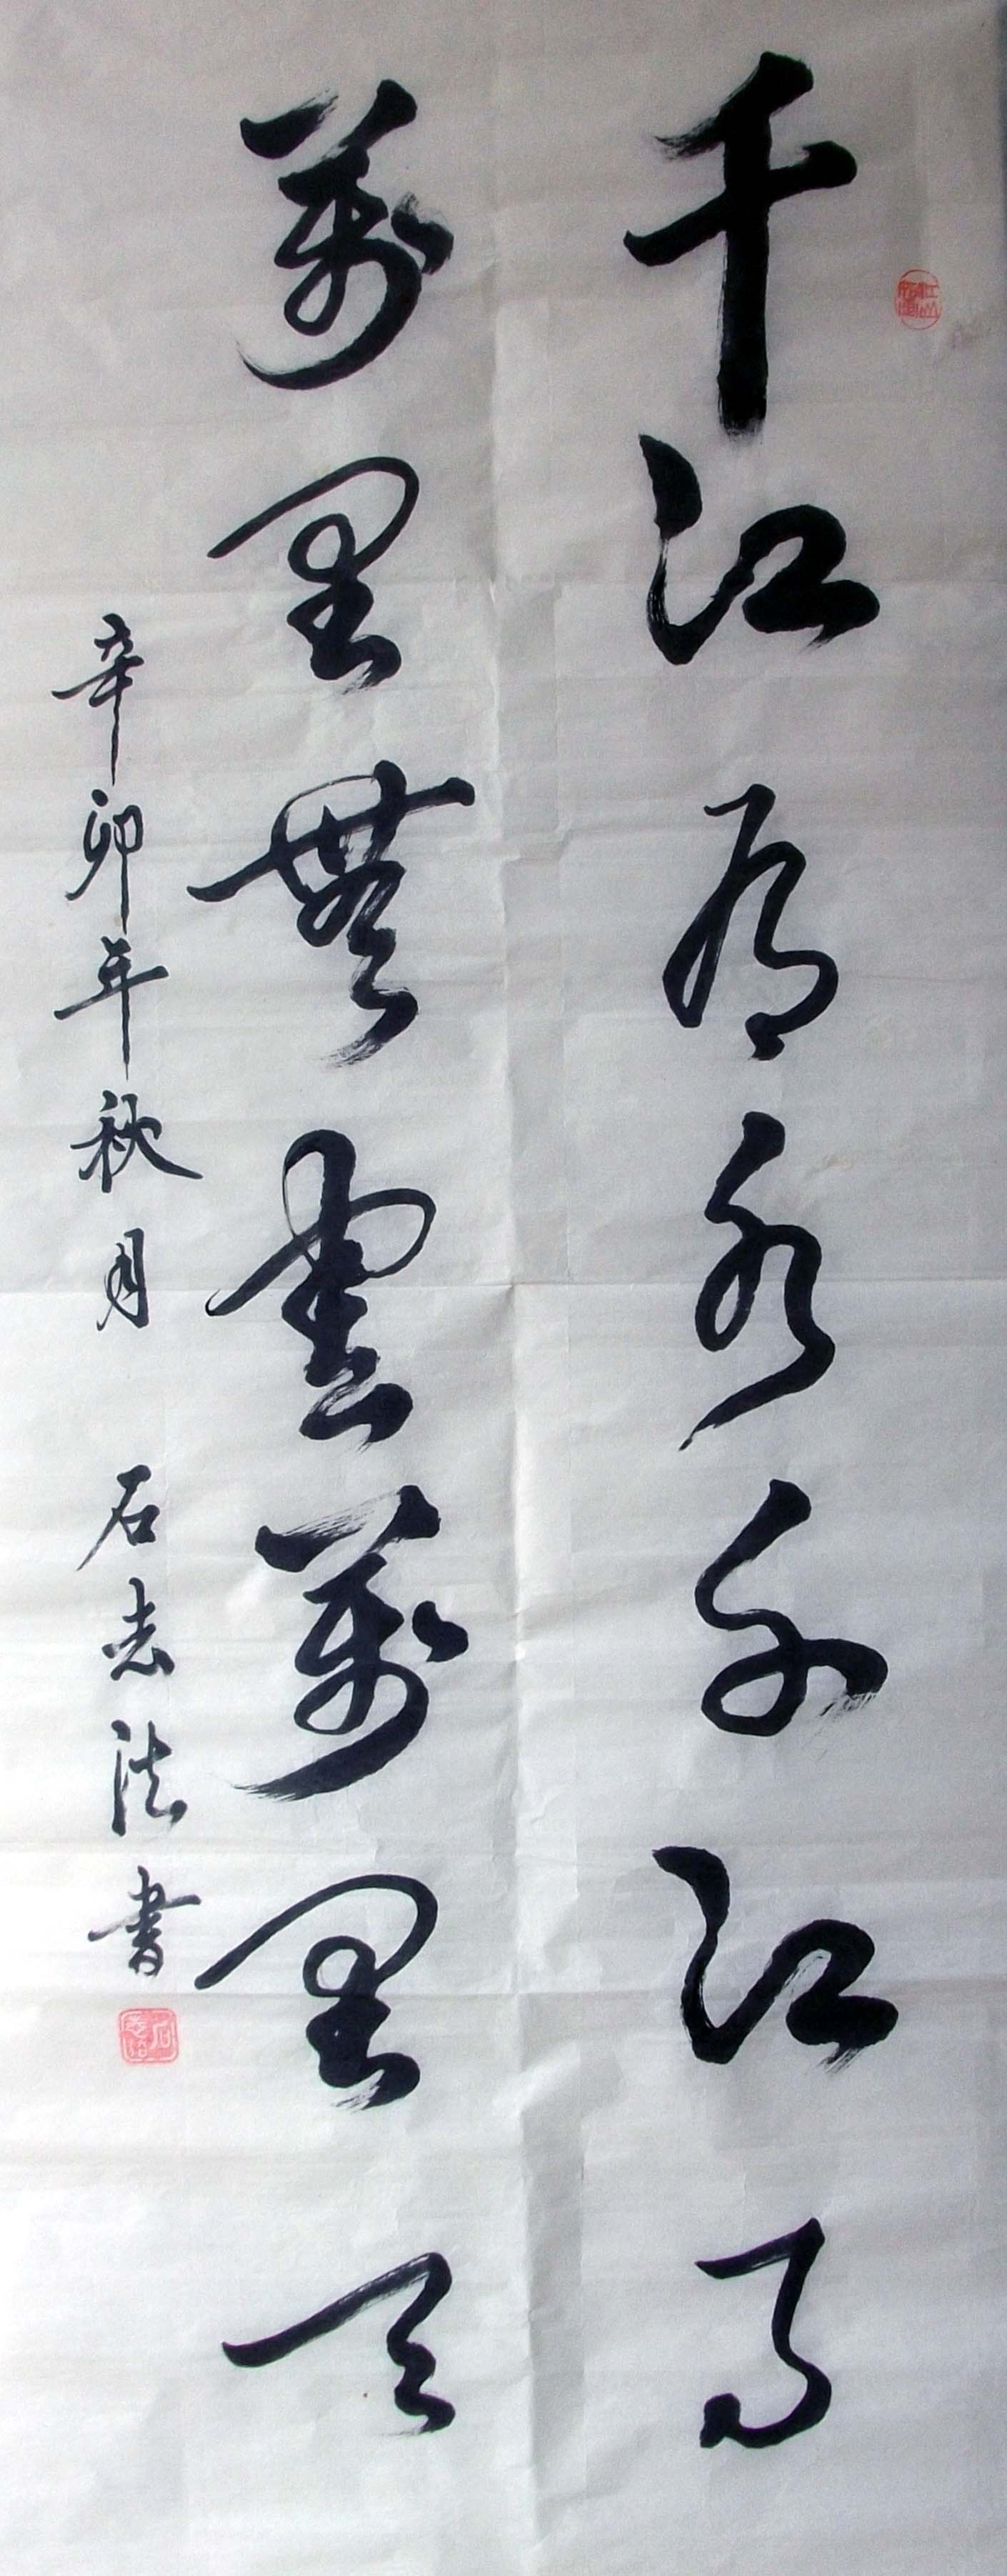 千江有水千江月
萬里無雲萬里天
辛卯年秋月 石志法書